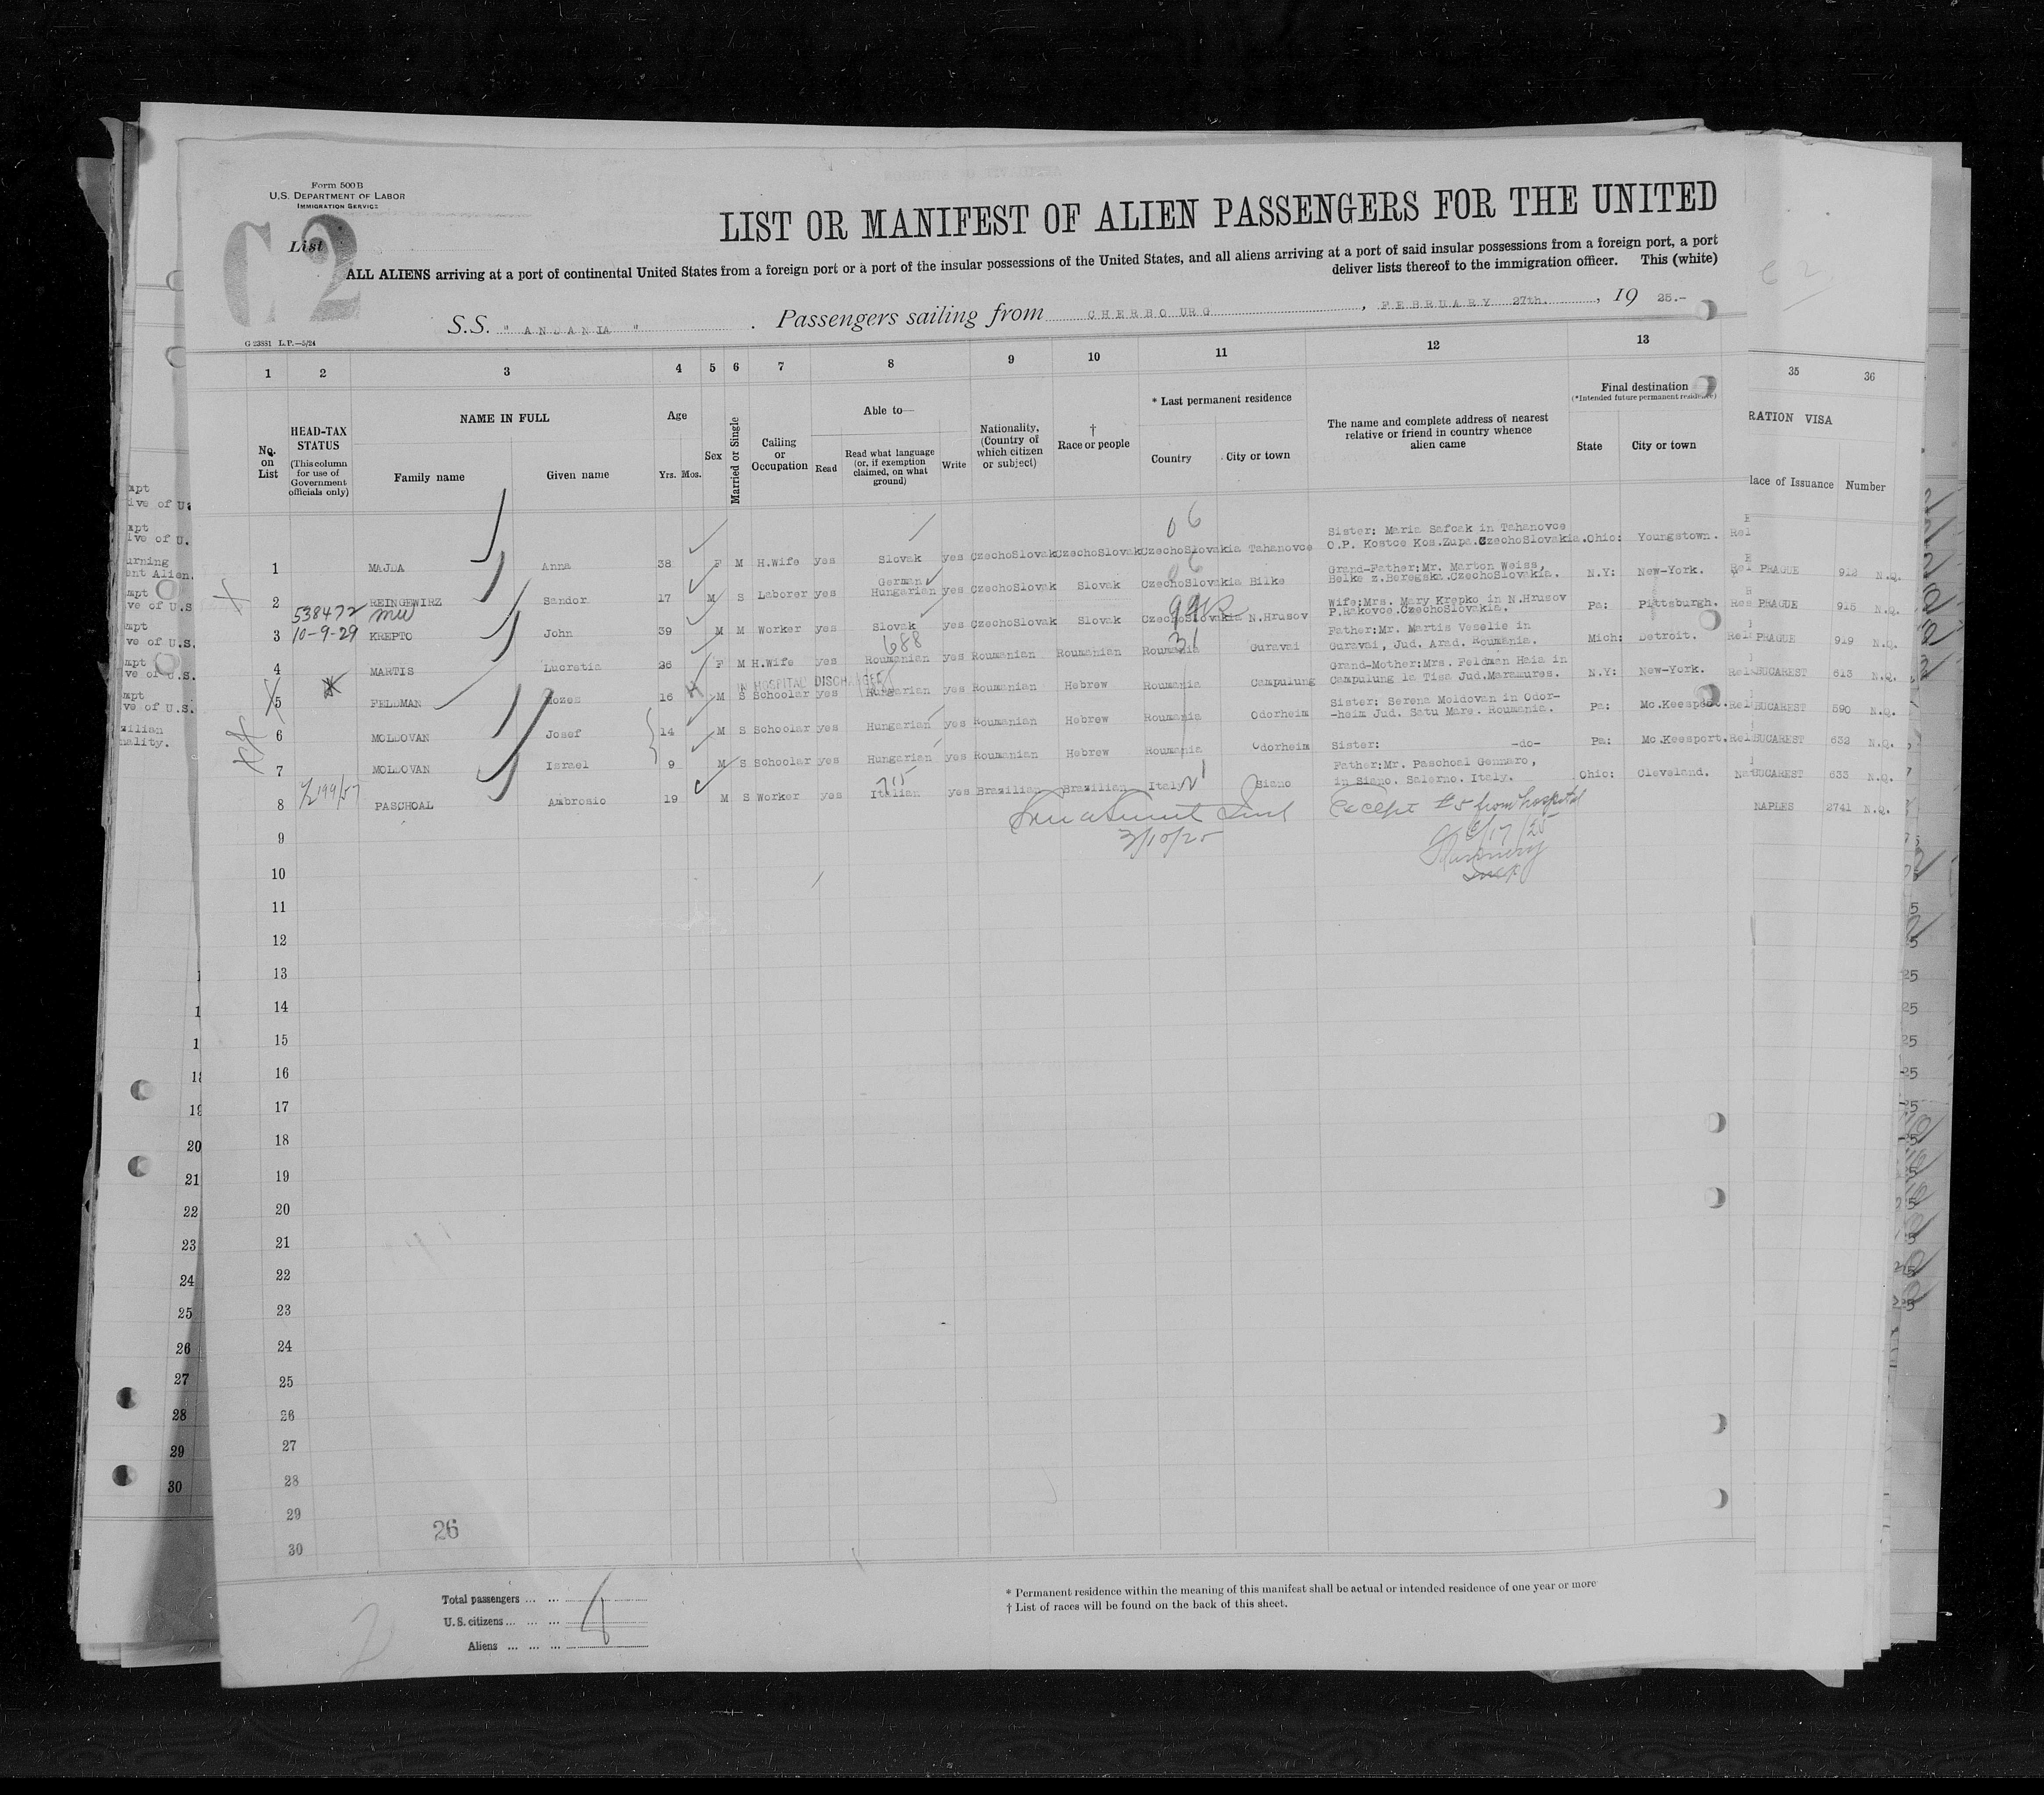 Form 500B
U.S. DEPARTMENT OF LABOR
IMMIGRATION SERVICE
C2
List
LIST OR MANIFEST OF ALIEN PASSENGERS FOR THE UNITED
ALL ALIENS arriving at a port of continental United States from a foreign port or a port of the insular possessions of the United States, and all aliens arriving at a port of said insular possessions from a foreign port, a port
deliver lists thereof to the immigration officer. This (white)
S.S. " ANDANIA " . Passengers sailing from CHERBOURG , FEBRUARY 27th. , 19 25.-
G 23851 L.P.—5/24
1 2 3 4 5 6 7 8 9 10 11 12 13 35 36
No. on List
HEAD-TAX STATUS
(This column for use of Government officials only)
NAME IN FULL
Family name Given name
Age
Yrs. Mos.
Sex
Married or Single
Calling or Occupation
Able to—
Read
Read what language (or, if exemption claimed, on what ground)
Write
Nationality, (Country of which citizen or subject)
† Race or people
* Last permanent residence
Country City or town
The name and complete address of nearest relative or friend in country whence alien came
Final destination
(*Intended future permanent residence)
State City or town
RATION VISA
lace of Issuance Number
1 MAJDA Anna 38 F M H.Wife yes Slovak yes CzechoSlovak CzechoSlovak CzechoSlovakia Tahanovce Sister: Maria Safcak in Tahanovce
O.P. Kostce Kos.Zupa.CzechoSlovakia. Ohio: Youngstown. PRAGUE 912 N.Q.
2 REINGEWIRZ Sandor 17 M S Laborer yes German Hungarian yes CzechoSlovak Slovak CzechoSlovakia Bilke Grand-Father:Mr. Marton Weiss,
Belke z.Beregska.CzechoSlovakia. N.Y: New-York. PRAGUE 915 N.Q.
538472
10-9-29
3 KREPTO John 39 M M Worker yes Slovak yes CzechoSlovak Slovak CzechoSlovakia N.Hrusov Wife:Mrs. Mary Krepko in N.Hrusov
P.Rakovce.CzechoSlovakia. Pa: Pittsburgh. PRAGUE 919 N.Q.
688
4 MARTIS Lucretia 26 F M H.Wife yes Roumanian yes Roumanian Roumanian Roumania Guravai Father:Mr. Martis Vezelie in
Guravai, Jud. Arad. Roumania. Mich: Detroit. BUCAREST 613 N.Q.
IN HOSPITAL DISCHARGED
5 FELDMAN Mozes 16 M S Schoolar yes Hungarian yes Roumanian Hebrew Roumania Campulung Grand-Mother:Mrs. Feldman Haia in
Campulung la Tisa Jud.Maramures. N.Y: New-York. BUCAREST 590 N.Q.
6 MOLDOVAN Josef 14 M S Schoolar yes Hungarian yes Roumanian Hebrew Roumania Odorheim Sister: Serena Moldovan in Odor-
-heim Jud. Satu Mare. Roumania. Pa: Mc.Keesport. BUCAREST 632 N.Q.
7 MOLDOVAN Israel 9 M S Schoolar yes Hungarian yes Roumanian Hebrew Roumania Odorheim Sister: -do- Pa: Mc.Keesport. BUCAREST 633 N.Q.
8 PASCHOAL Ambrosio 19 M S Worker yes Italian yes Brazilian Brazilian Italy Siano Father:Mr. Paschoal Gennaro,
in Siano. Salerno. Italy. Ohio: Cleveland. NAPLES 2741 N.Q.
3/10/25
Except #5 from hospital
9
10
11
12
13
14
15
16
17
18
19
20
21
22
23
24
25
26
27
28
29
30
26
Total passengers ... ...
U.S. citizens ... ... ...
Aliens ... ... ...
* Permanent residence within the meaning of this manifest shall be actual or intended residence of one year or more
† List of races will be found on the back of this sheet.